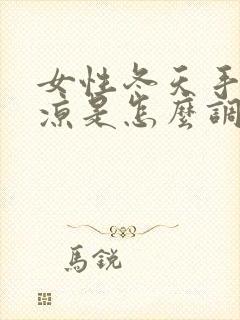 女性冬天手
涼是怎麼調
馬銳